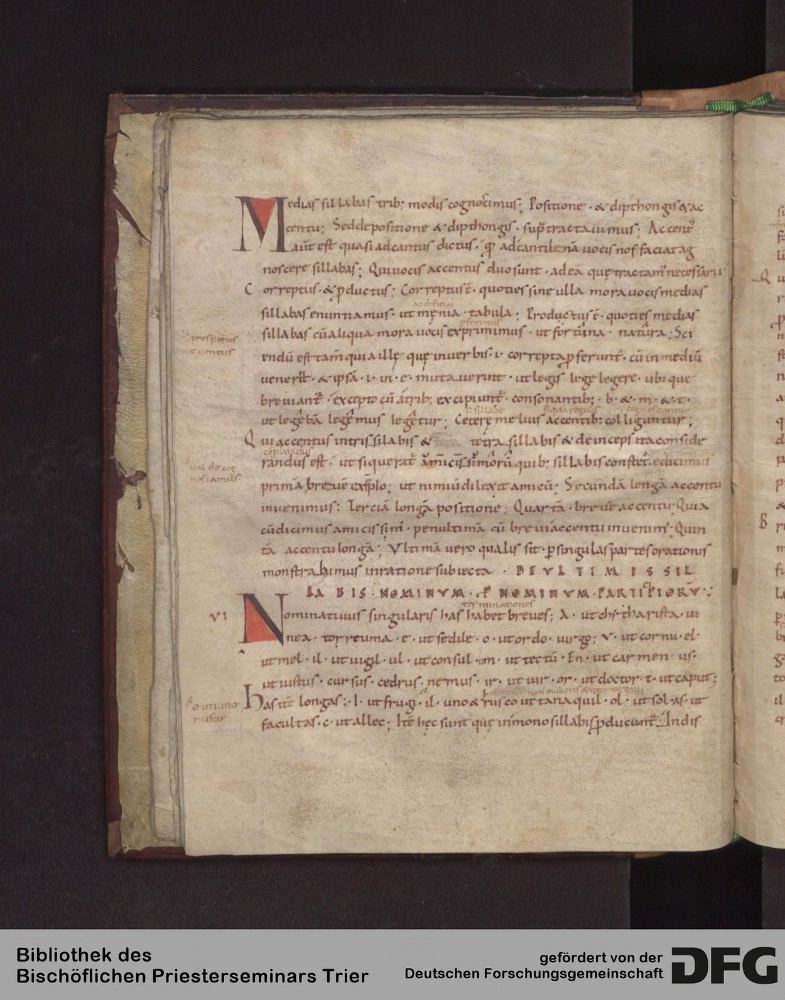 Medias sillabas trib; modis cognoscimus; Positione · & dipthongis & ac
centu; Sed de positione & dipthongis · sup̄ tractavimus; Accent᷒
aut̄ est quasi ad cantus dictus · qđ ad cantilenā vocis nos faciat ag
noscere sillabas; Qui vocis accentus duo sunt · ad ea que tractam᷒ necesarii
Correptus · & ꝓductus; Correptus ē · quoties sine ulla mora vocis medias
aedificia
sillabas enuntiamus · ut męnia · tabula; Productus ē · quoties medias
sillabas cū aliqua mora vocis exprimimus · ut fortūna · natūra; Sci
prosperus
eventus
endū est tam quia illę quę in verbis · i · correpta ꝓferunt᷒ · cū in mediū
venerit · & ipsā · i · in · e · mutaverint · ut legis lege legere · ubique
breviant᷒ · excepto cū a trib; excipiunt᷒ · consonantib; · b · & · m · & · t ·
ut legebā legemus legetur; Cetere melius accentib; colliguntur;
Qui accentus in trisillabis & tetrasillabis & deinceps ita conside
randus est · ut si querat᷒ amicissimorū quib; sillabis constet · edicimus
primā brevē exēplo; ut nimiū dilexit amicū; Secundā longā accentu
invenimus; Terciā longā positione; Quartā · brevē accentu; Quia
cū dicimus amicissim᷒ · penultimā cū brevi accentu invenim᷒; Quin
tā accentu longā; Ultimā vero qualis sit · ꝑ singulas partes orationis
monstrabimus in ratione subiecta · DE VLTIMIS SIL
LABIS · NOMINVM · & P̄NOMINVM · PARTICIPIORV̄ :
terminationes
VI
Nominativus singularis has habet breves; A · ut cithara · ista · vi
nea · torreuma · e · ut sedile · o · ut ordo · virgo; v · ut cornu · el ·
ut mel · il · ut vigil · ul · ut consul · um · ut tectū · En · ut carmen · us ·
ut iustus · cursus · cedrus · nemus · ir · ut vir · or · ut doctor · t · ut caput;
has vē longas; · I · ut frugi · il · uno & rusco ut tanaquil · ol · ut sol · as · ut
facultas · c · ut allec; Itē hęc sunt quę in monosillabis ꝓducunt᷒ · In dis
Bibliothek des
Bischöflichen Priesterseminars Trier
gefördert von der
Deutschen Forschungsgemeinschaft
DFG